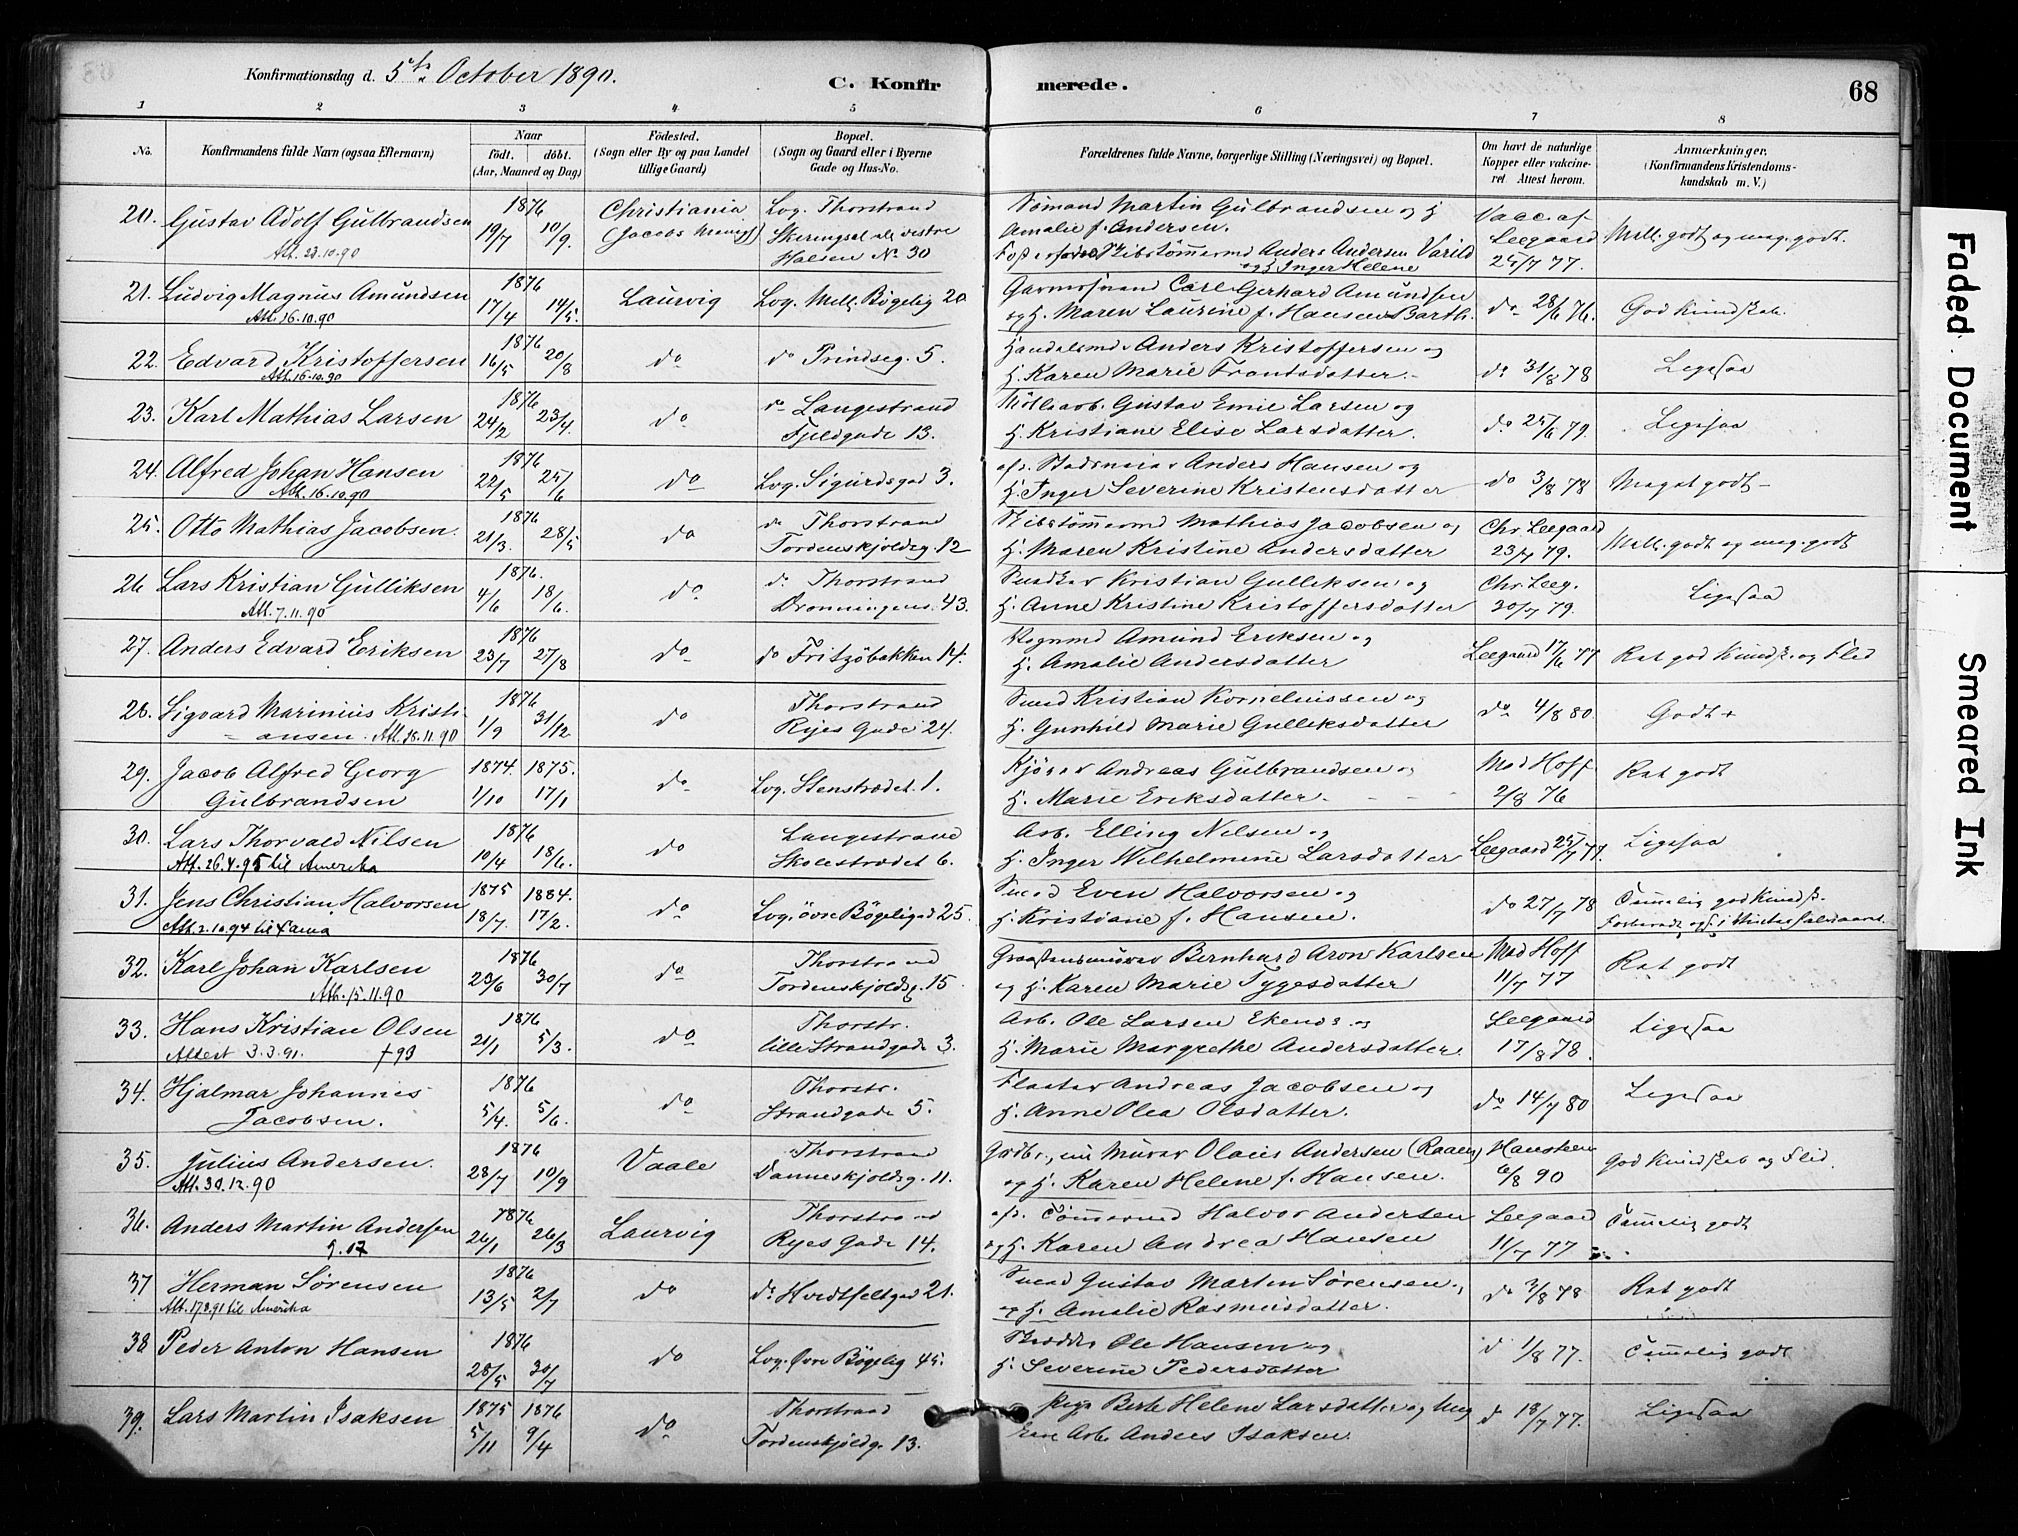 Konfirmationsdag d. 5te October 1890.
C. Konfirmerede.
68
1 2 3 4 5 6 7 8
No.
Konfirmandens fulde Navn (ogsaa Efternavn)
Naar
født. døbt.
(Aar, Maaned og Dag)
Fødested.
(Sogn eller By og paa Landet
tillige Gaard)
Bopæl.
(Sogn og Gaard eller i Byerne
Gade og Hus-No.
Forældrenes fulde Navne, borgerlige Stilling (Næringsvei) og Bopæl.
Om havt de naturlige
Kopper eller vakcine-
ret. Attest herom.
Anmærkninger.
(Konfirmandens Kristendoms-
kundskab m. V.)
20. Gustav Adolf Gulbrandsen
Att. 23.10.90
1876
19/7 10/9.
Christiania
(Jacobs Menigh)
Lvg. Thorstrand
vestre
Halsen No 30
Sømand Martin Gulbrandsen og H
Amalie f. Andersen.
Skibstømmermd Anders Andersen Varild
og H Inger Helene
Vacc. af
Leegaard
25/7 77.
Mell. godt og meg. godt.
21. Ludvig Magnus Amundsen
Att. 16.10.90
1876
17/4 14/5.
Laurvig
Lvg. Mell. Bøgelig 20
Garversvend Carl Gerhard Amundsen
og H. Maren Laurine f. Hansen Barth.
do 28/6 76.
God Kundskab.
22. Edvard Kristoffersen
Att. 16.10.90
1876
16/5 20/8
do
do Prindseg. 5.
Handelsmd Anders Kristoffersen og
H. Karen Marie Frantsdatter.
do 31/8 78
Ligesaa
23. Karl Mathias Larsen
1876
24/2 23/4.
do
do Langestrand
Fjeldgade 13.
Gustav Emil Larsen og
H. Kristiane Elise Larsdatter.
do 25/6 79.
Ligesaa
24. Alfred Johan Hansen
Att. 16.10.90
1876
22/5 25/6
do
Lvg. Sigurdsgad 3.
Anders Hansen og
H. Inger Severine Kristensdatter
do 3/8 78
Meget godt
25. Otto Mathias Jacobsen.
1876
21/3. 28/5
do
do Thorstrand
Tordenskjoldsg. 12
Skibstømmermd Mathias Jacobsen og
H. Maren Kristine Andersdatter
Chr. Leegaard
23/7 79.
Mell. godt og meg. godt
26 Lars Kristian Gulliksen
Att. 7.11.90
1876.
4/6 18/6.
do
do Thorstrand
Dronningens. 43.
Snedker Kristian Gulliksen og
H. Anne Kristine Kristoffersdatter
Chr. Leeg.
30/7 79.
Ligesaa
27. Anders Edvard Eriksen
1876
23/7 27/8
do
do Fritzöbakken 14.
Vognmd Amund Eriksen og
H. Amalie Andersdatter
Leegaard 17/6 77
Ret god Kundsk. og Flid
28. Sigvard Marinius Kristi-
ansen. Att. 28.11.90
1876
1/9 31/12
do
Thorstrand
Ryes Gade 24.
Smed Kristian Kornelinssen og
H. Gunhild Marie Gulliksdatter
do 4/8 80
Godt +
29. Jacob Alfred Georg
Gulbrandsen
1874. 1875.
1/10 17/1
do
Lvg. Stenstrædet 1.
Andreas Gulbrandsen og
H. Marie Eriksdatter.
Mad Hoff
2/8 76
Ret godt
30. Lars Thorvald Nilsen
Att. 26.4.95 til Amerika
1876
10/4 18/6.
do
Langestrand
Skolestrædet 6.
Arb. Elling Nilsen og
H. Inger Wilhelmine Larsdatter
Leegaard 25/7 77.
Ligesaa
31. Jens Christian Halvorsen
Att. 2.10.94 til
1875 1884.
18/7. 17/2.
do
Lvg. övre Bøgeligad 25.
Smed Even Halvorsen og
H. Kristiane f. Hansen.
do 27/7 78
Temmelig god Kundsk.
32. Karl Johan Karlsen
Att. 15.11.90
1876
23/6 30/7
do
Thorstrand
Tordenskjoldsg. 15
Bernhard Aron Karlsen
og H. Karen Marie Tygesdatter
Mad Hoff
11/7 77
Ret godt
33. Hans Kristian Olsen
Attest 3.3.91. +93
1876
21/1 5/3.
do
Thorstr.
lille Strandgade 3.
Arb. Ole Larsen og
H. Marie Margrethe Andersdatter
Leegaard
17/8 78.
Ligesaa
34. Hjalmar Johannes
Jacobsen.
1876
5/4. 5/6.
do
Thorstr.
Strandgade 5.
Andreas Jacobsen og
H. Anne Olea Olsdatter.
do 14/7 80
Ligesaa
35. Julius Andersen.
Att. 30.12.90
1876
28/7 10/9
Vaale
Thorstrand
Danneskjoldsg. 11.
Murer Olaus Andersen (Raaen)
og H. Karen Helene f. Hansen.
Hansteen
6/8 90
God Kundskab og Flid.
36. Anders Martin Andersen
1876
26/1 26/3
Laurvig
Thorstrand
Ryes Gade 14.
Tømmermd Halvor Andersen
og H. Karen Andrea Hansen
Leegaard
11/7 77
Temmelig godt
37 Herman Sørensen
Att. 17.3.91 til Amerika
1876
13/5 2/7
do
do Hvidtfeltgad 21.
Smed Gustav Martin Sørensen
og H. Amalie Rasmusdatter.
do 3/8 78
Ret godt
38 Peder Anton Hansen
1876
28/5 30/7
do
Lvg. Övre Bøgelig 45.
Ole Hansen og
H. Severine Pedersdatter
d 1/8 77.
Temmelig godt
39. Lars Martin Isaksen
1875 1876
5/11 9/4
do
Thorstrand
Tordenskjoldg. 13.
Pige Berte Helene Larsdatter og Ung
Arb. Anders Isaksen.
d 18/7 77.
Ligesaa
Faded Document
Smeared Ink